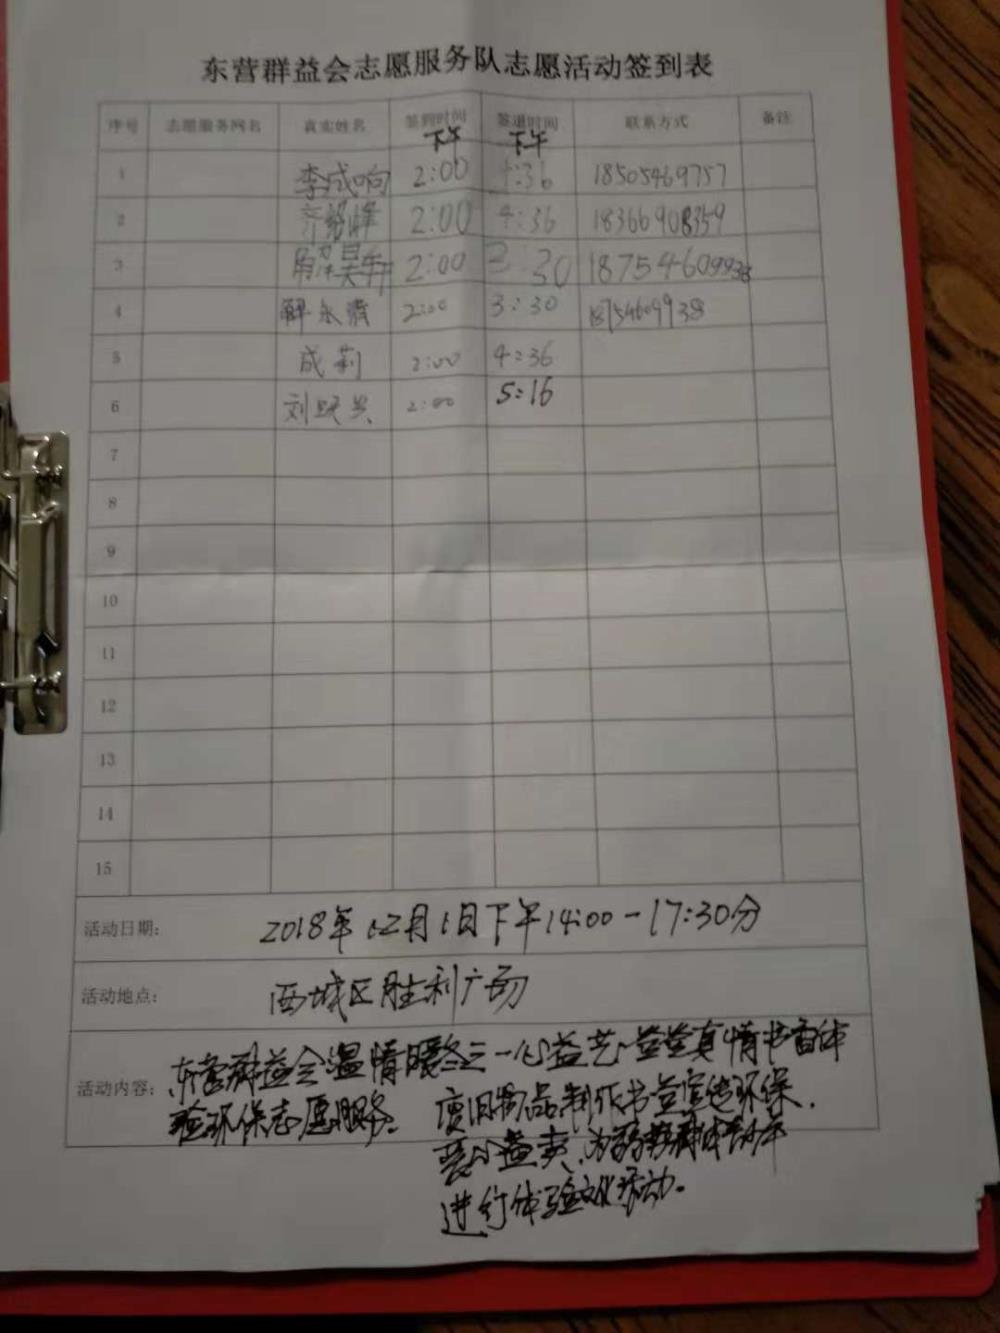 东营群益会志愿服务队志愿活动签到表
序号 志愿服务网名 真实姓名 签到时间 签退时间 联系方式 备注
下午 下午
1 李成响 2:00 4:36 18505469757
2 齐 峰 2:00 4:36 18366908359
3 2:00 3:30 18754609938
4 解永霞 2:00 3:30 18754609938
5 成莉 2:00 4:36
6 刘 2:00 5:16
7
8
9
10
11
12
13
14
15
活动日期: 2018年12月1日下午14:00-17:30分
活动地点: 西城区胜利广场
活动内容: 东营群益会温情暖冬三一心益艺 益益真情书香体
验环保志愿服务. 废旧物品制作书签宣传环保.
爱心义卖,为
进行体验文化活动。